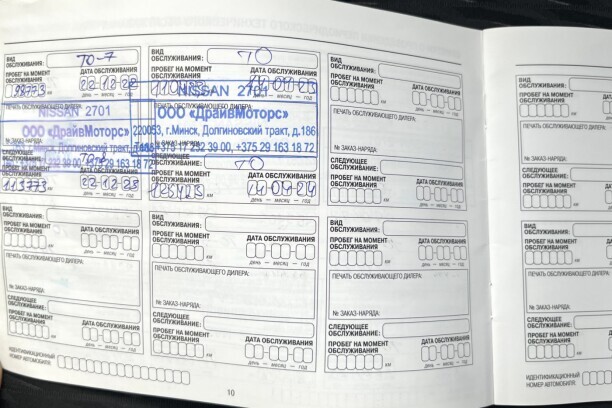 ВИД ОБСЛУЖИВАНИЯ: ТО-7
ПРОБЕГ НА МОМЕНТ ОБСЛУЖИВАНИЯ ДАТА ОБСЛУЖИВАНИЯ
98773 км 22 12 22
NISSAN 2701
ООО «ДрайвМоторс»
СЛЕДУЮЩЕЕ ОБСЛУЖИВАНИЕ:
113773 км 22 12 23
день — месяц — год
ВИД ОБСЛУЖИВАНИЯ: ТО
ПРОБЕГ НА МОМЕНТ ОБСЛУЖИВАНИЯ ДАТА ОБСЛУЖИВАНИЯ
NISSAN 2701
ПЕЧАТЬ ОБСЛУЖИВАЮЩЕГО ДИЛЕРА:
ООО «ДрайвМоторс»
220053, г.Минск, Долгиновский тракт, д.186
+375 17 232 39 00, +375 29 163 18 72
СЛЕДУЮЩЕЕ ОБСЛУЖИВАНИЕ: ТО
ПРОБЕГ НА МОМЕНТ ОБСЛУЖИВАНИЯ ДАТА ОБСЛУЖИВАНИЯ
день — месяц — год
ВИД ОБСЛУЖИВАНИЯ:
ПРОБЕГ НА МОМЕНТ ОБСЛУЖИВАНИЯ ДАТА ОБСЛУЖИВАНИЯ
км день — месяц — год
ПЕЧАТЬ ОБСЛУЖИВАЮЩЕГО ДИЛЕРА:
№ ЗАКАЗ-НАРЯДА:
СЛЕДУЮЩЕЕ ОБСЛУЖИВАНИЕ:
ПРОБЕГ НА МОМЕНТ ОБСЛУЖИВАНИЯ ДАТА ОБСЛУЖИВАНИЯ
км день — месяц — год
ВИД ОБСЛУЖИВАНИЯ:
ПРОБЕГ НА МОМЕНТ ОБСЛУЖИВАНИЯ ДАТА ОБСЛУЖИВАНИЯ
км день — месяц — год
ПЕЧАТЬ ОБСЛУЖИВАЮЩЕГО ДИЛЕРА:
№ ЗАКАЗ-НАРЯДА:
СЛЕДУЮЩЕЕ ОБСЛУЖИВАНИЕ:
ПРОБЕГ НА МОМЕНТ ОБСЛУЖИВАНИЯ ДАТА ОБСЛУЖИВАНИЯ
км день — месяц — год
ВИД ОБСЛУЖИВАНИЯ:
ПРОБЕГ НА МОМЕНТ ОБСЛУЖИВАНИЯ ДАТА ОБСЛУЖИВАНИЯ
км день — месяц — год
ПЕЧАТЬ ОБСЛУЖИВАЮЩЕГО ДИЛЕРА:
№ ЗАКАЗ-НАРЯДА:
СЛЕДУЮЩЕЕ ОБСЛУЖИВАНИЕ:
ПРОБЕГ НА МОМЕНТ ОБСЛУЖИВАНИЯ ДАТА ОБСЛУЖИВАНИЯ
км день — месяц — год
ВИД ОБСЛУЖИВАНИЯ:
ПРОБЕГ НА МОМЕНТ ОБСЛУЖИВАНИЯ ДАТА ОБСЛУЖИВАНИЯ
км день — месяц — год
ПЕЧАТЬ ОБСЛУЖИВАЮЩЕГО ДИЛЕРА:
№ ЗАКАЗ-НАРЯДА:
СЛЕДУЮЩЕЕ ОБСЛУЖИВАНИЕ:
ПРОБЕГ НА МОМЕНТ ОБСЛУЖИВАНИЯ ДАТА ОБСЛУЖИВАНИЯ
км день — месяц — год
ИДЕНТИФИКАЦИОННЫЙ НОМЕР АВТОМОБИЛЯ:
10
ВИД ОБСЛУЖИВАНИЯ:
ПРОБЕГ НА МОМЕНТ ОБСЛУЖИВАНИЯ
ПЕЧАТЬ ОБСЛУЖИВАЮЩЕГО
№ ЗАКАЗ-НАРЯДА:
СЛЕДУЮЩЕЕ ОБСЛУЖИВАНИЕ:
ПРОБЕГ НА МОМЕНТ ОБСЛУЖИВАНИЯ
ВИД ОБСЛУЖИВАНИЯ:
ПРОБЕГ НА МОМЕНТ ОБСЛУЖИВАНИЯ
ПЕЧАТЬ ОБСЛУЖИВАЮЩЕГО
№ ЗАКАЗ-НАРЯДА:
СЛЕДУЮЩЕЕ ОБСЛУЖИВАНИЕ:
ПРОБЕГ НА МОМЕНТ ОБСЛУЖИВАНИЯ
ИДЕНТИФИКАЦИОННЫЙ НОМЕР АВТОМОБИЛЯ: